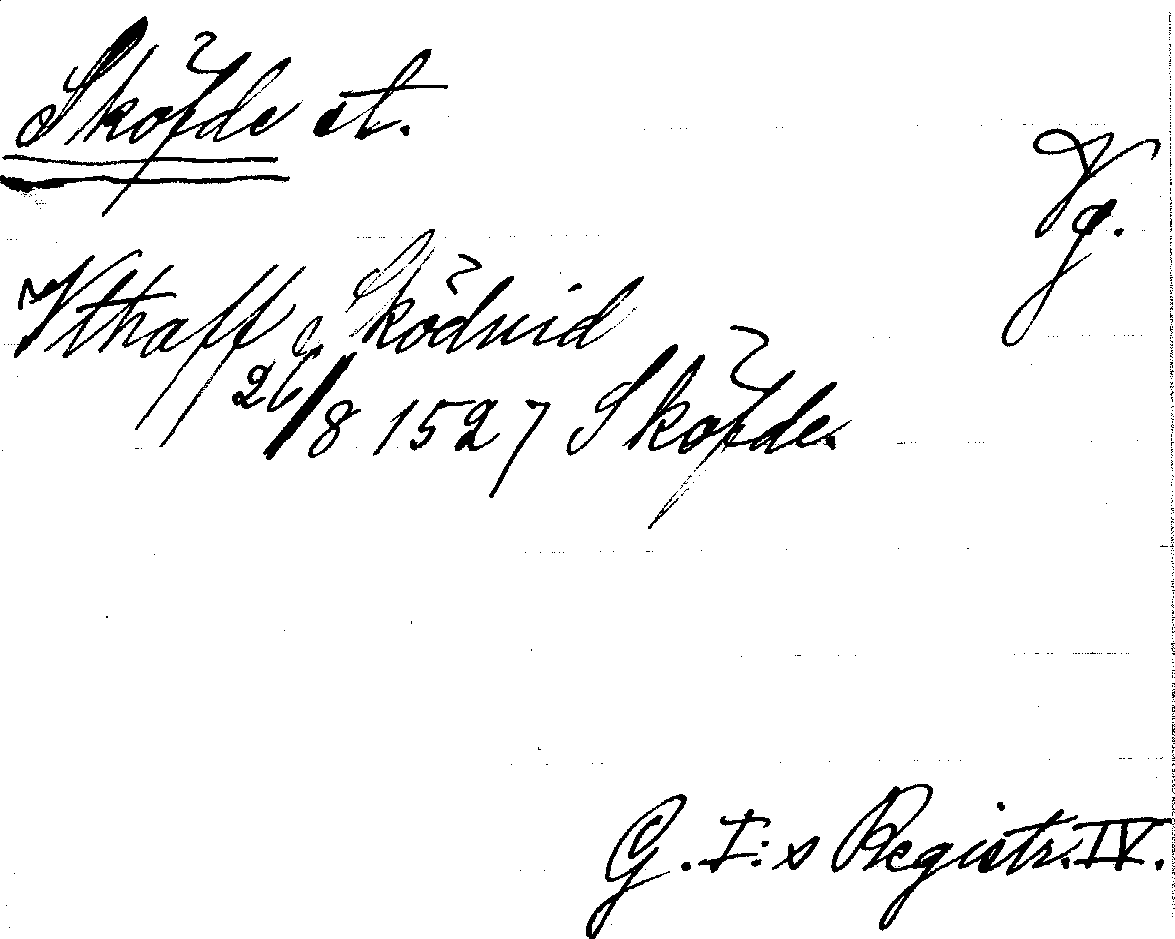 Sköfde st.
Vg.
Vthaff Sködwid
26/8 1527 Sköfde.
G. I:s Registr. IV.